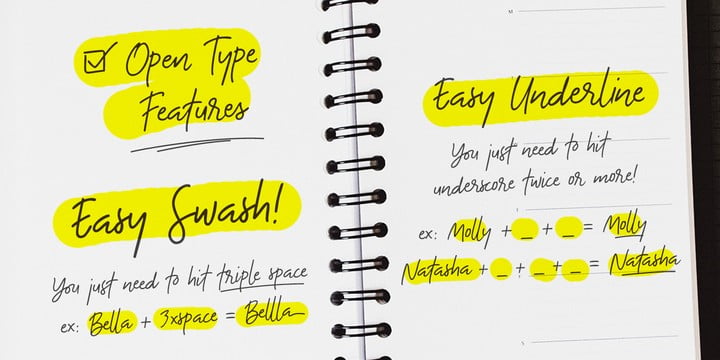 Open Type
Features
Easy Swash!
You just need to hit triple space
ex: Bella + 3xspace = Bellla
Easy Underline
You just need to hit
underscore twice or more!
ex: Molly + _ + _ = Molly
Natasha + _ + _ + _ = Natasha